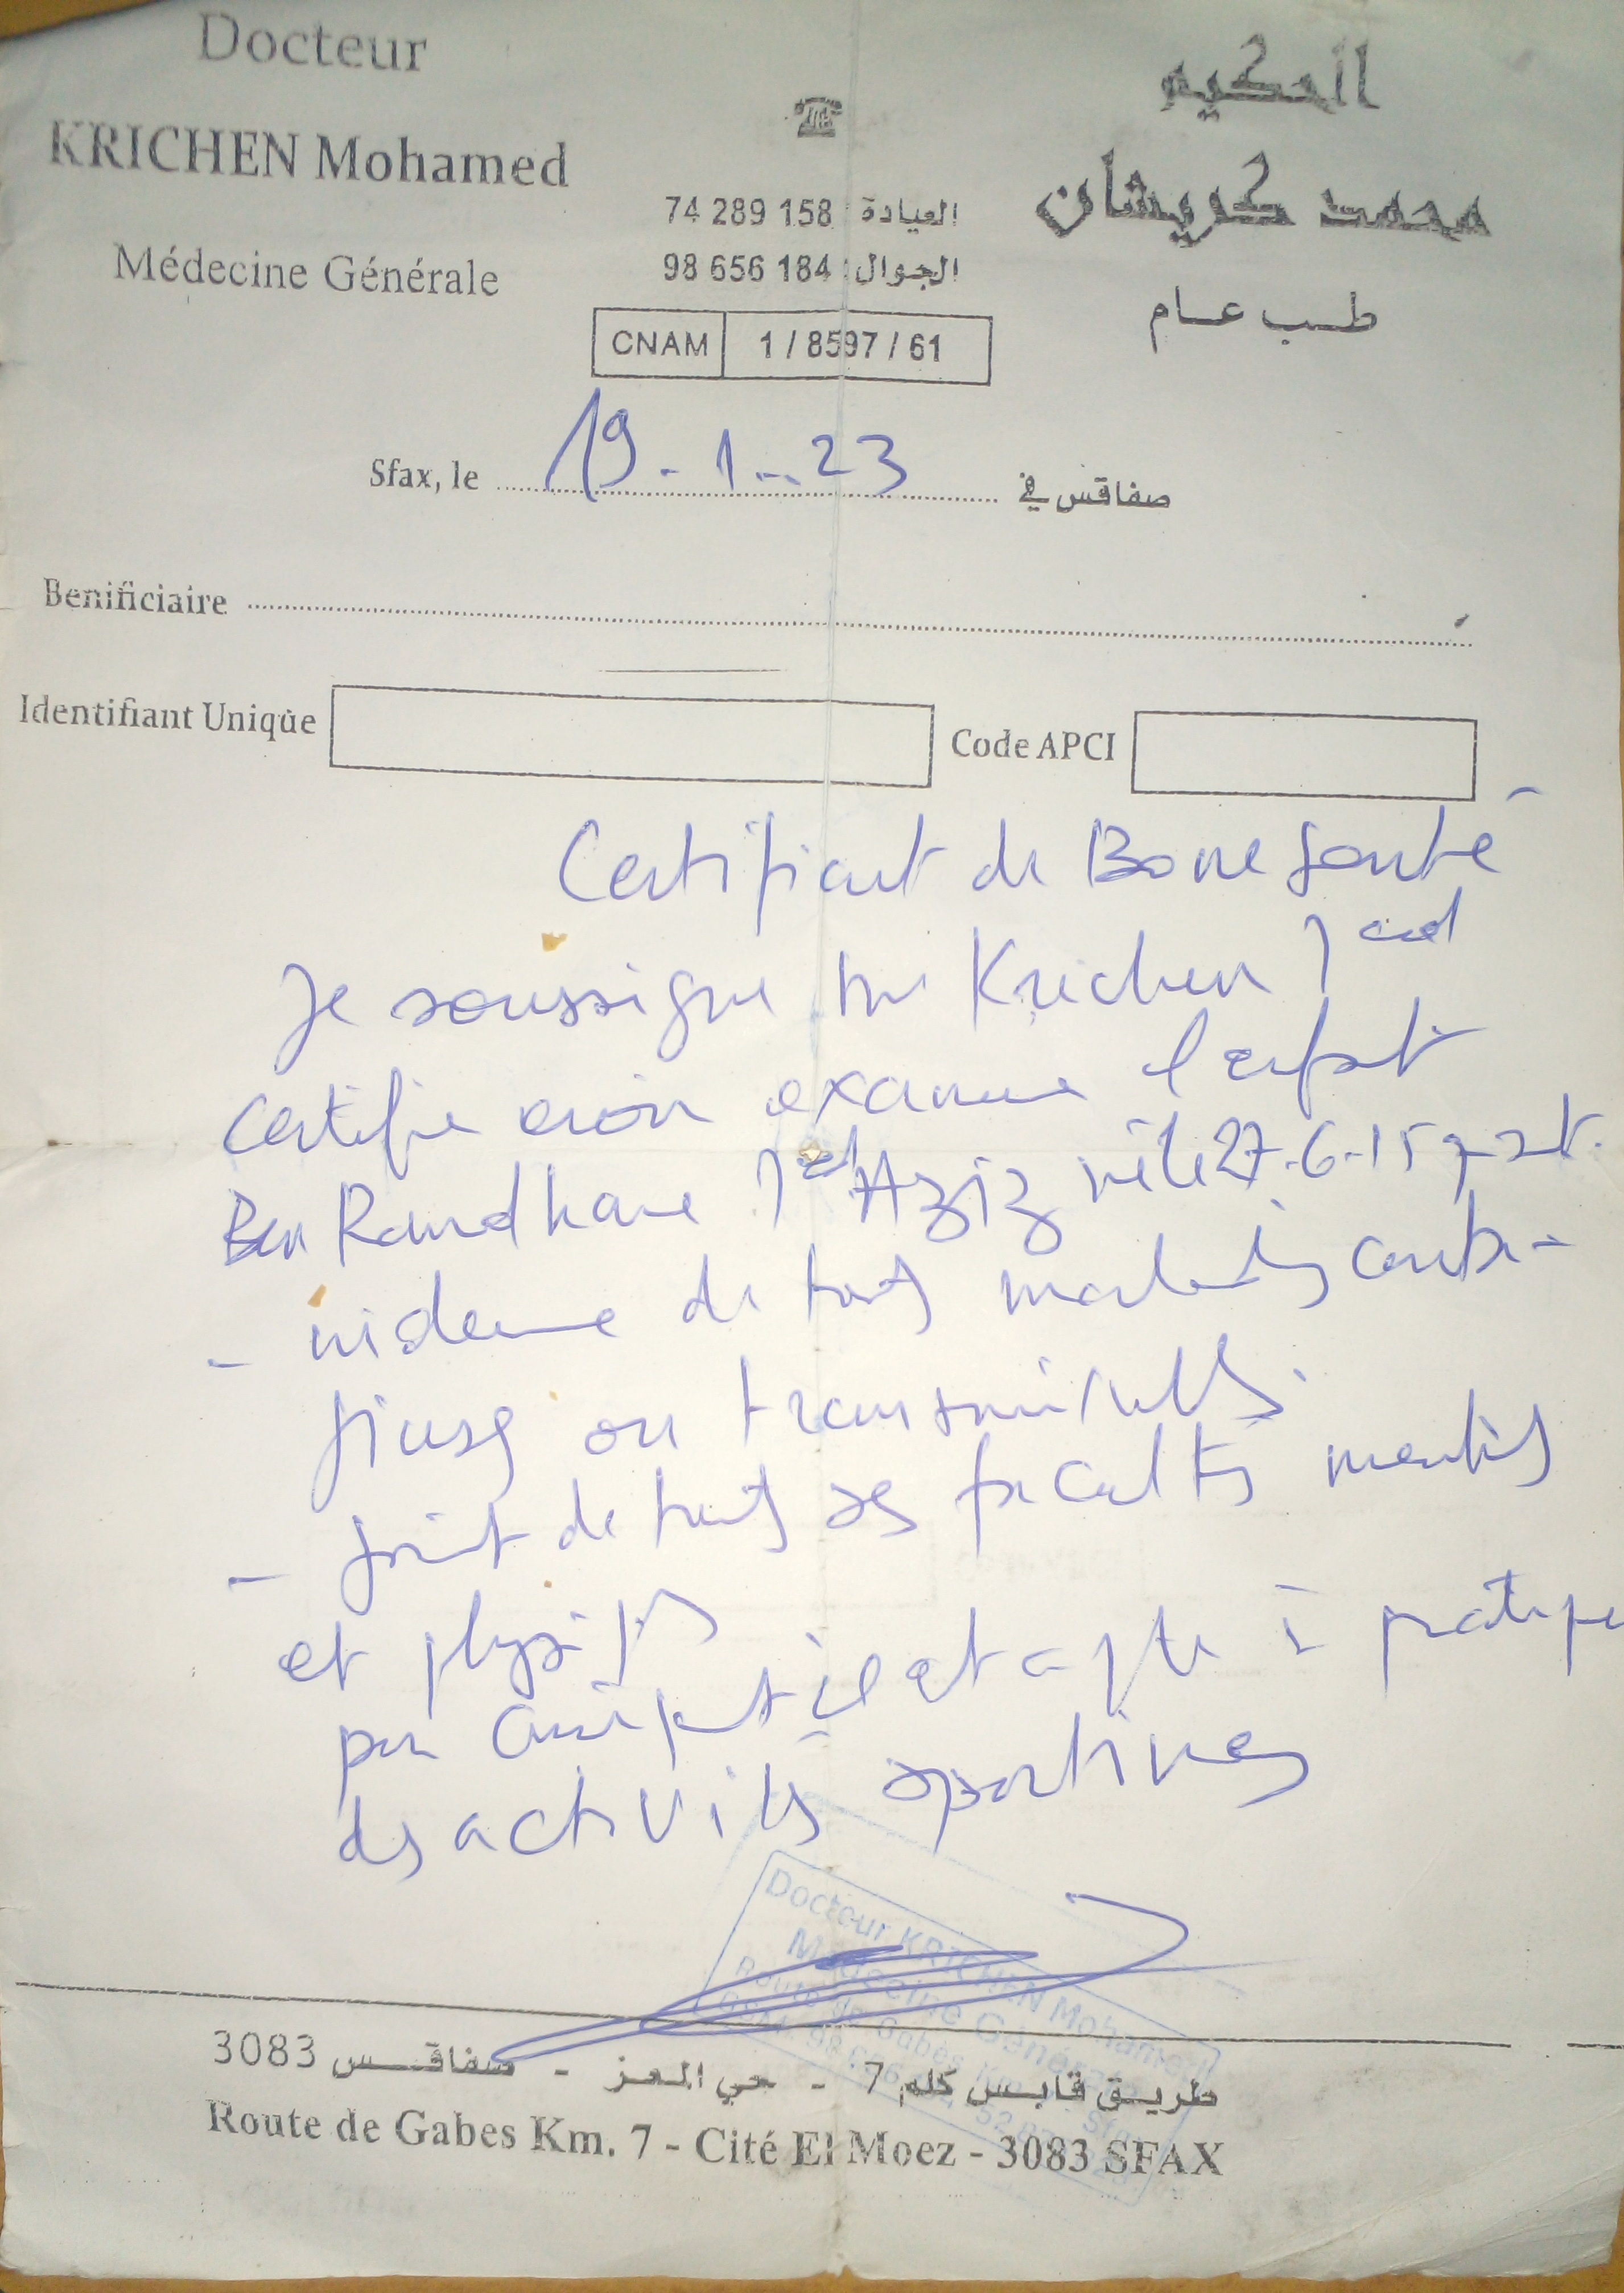 Docteur
KRICHEN Mohamed
Médecine Générale
العيادة : 74 289 158
الجوال : 98 656 184
CNAM 1 / 8597 / 61
الحكيم
محمد كريشان
طب عام
Sfax, le 19-1-23 صفاقس في
Benificiaire
Identifiant Unique Code APCI
Certificat de Bone santé
Je soussigne Krichen
certifie avoir examine l'enfant
Ben Ramdhane Aziz né le 27-6-15
- indemne de touts maladies conta-
gieuses ou transmissibles.
- jouit de touts ses facultés mentales
et physiques
par conséquent il est apte à pratiquer
des activités sportives
Docteur KRICHEN Mohamed
Médecine Générale
Route de Gabes
طريق قابس كلم 7 - حي المعز - صفاقس 3083
Route de Gabes Km. 7 - Cité El Moez - 3083 SFAX